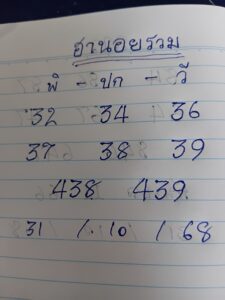 ฮานอยรวม
พิ - ปก - วี
32 34 36
37 38 39
438 439
31 / 10 / 68